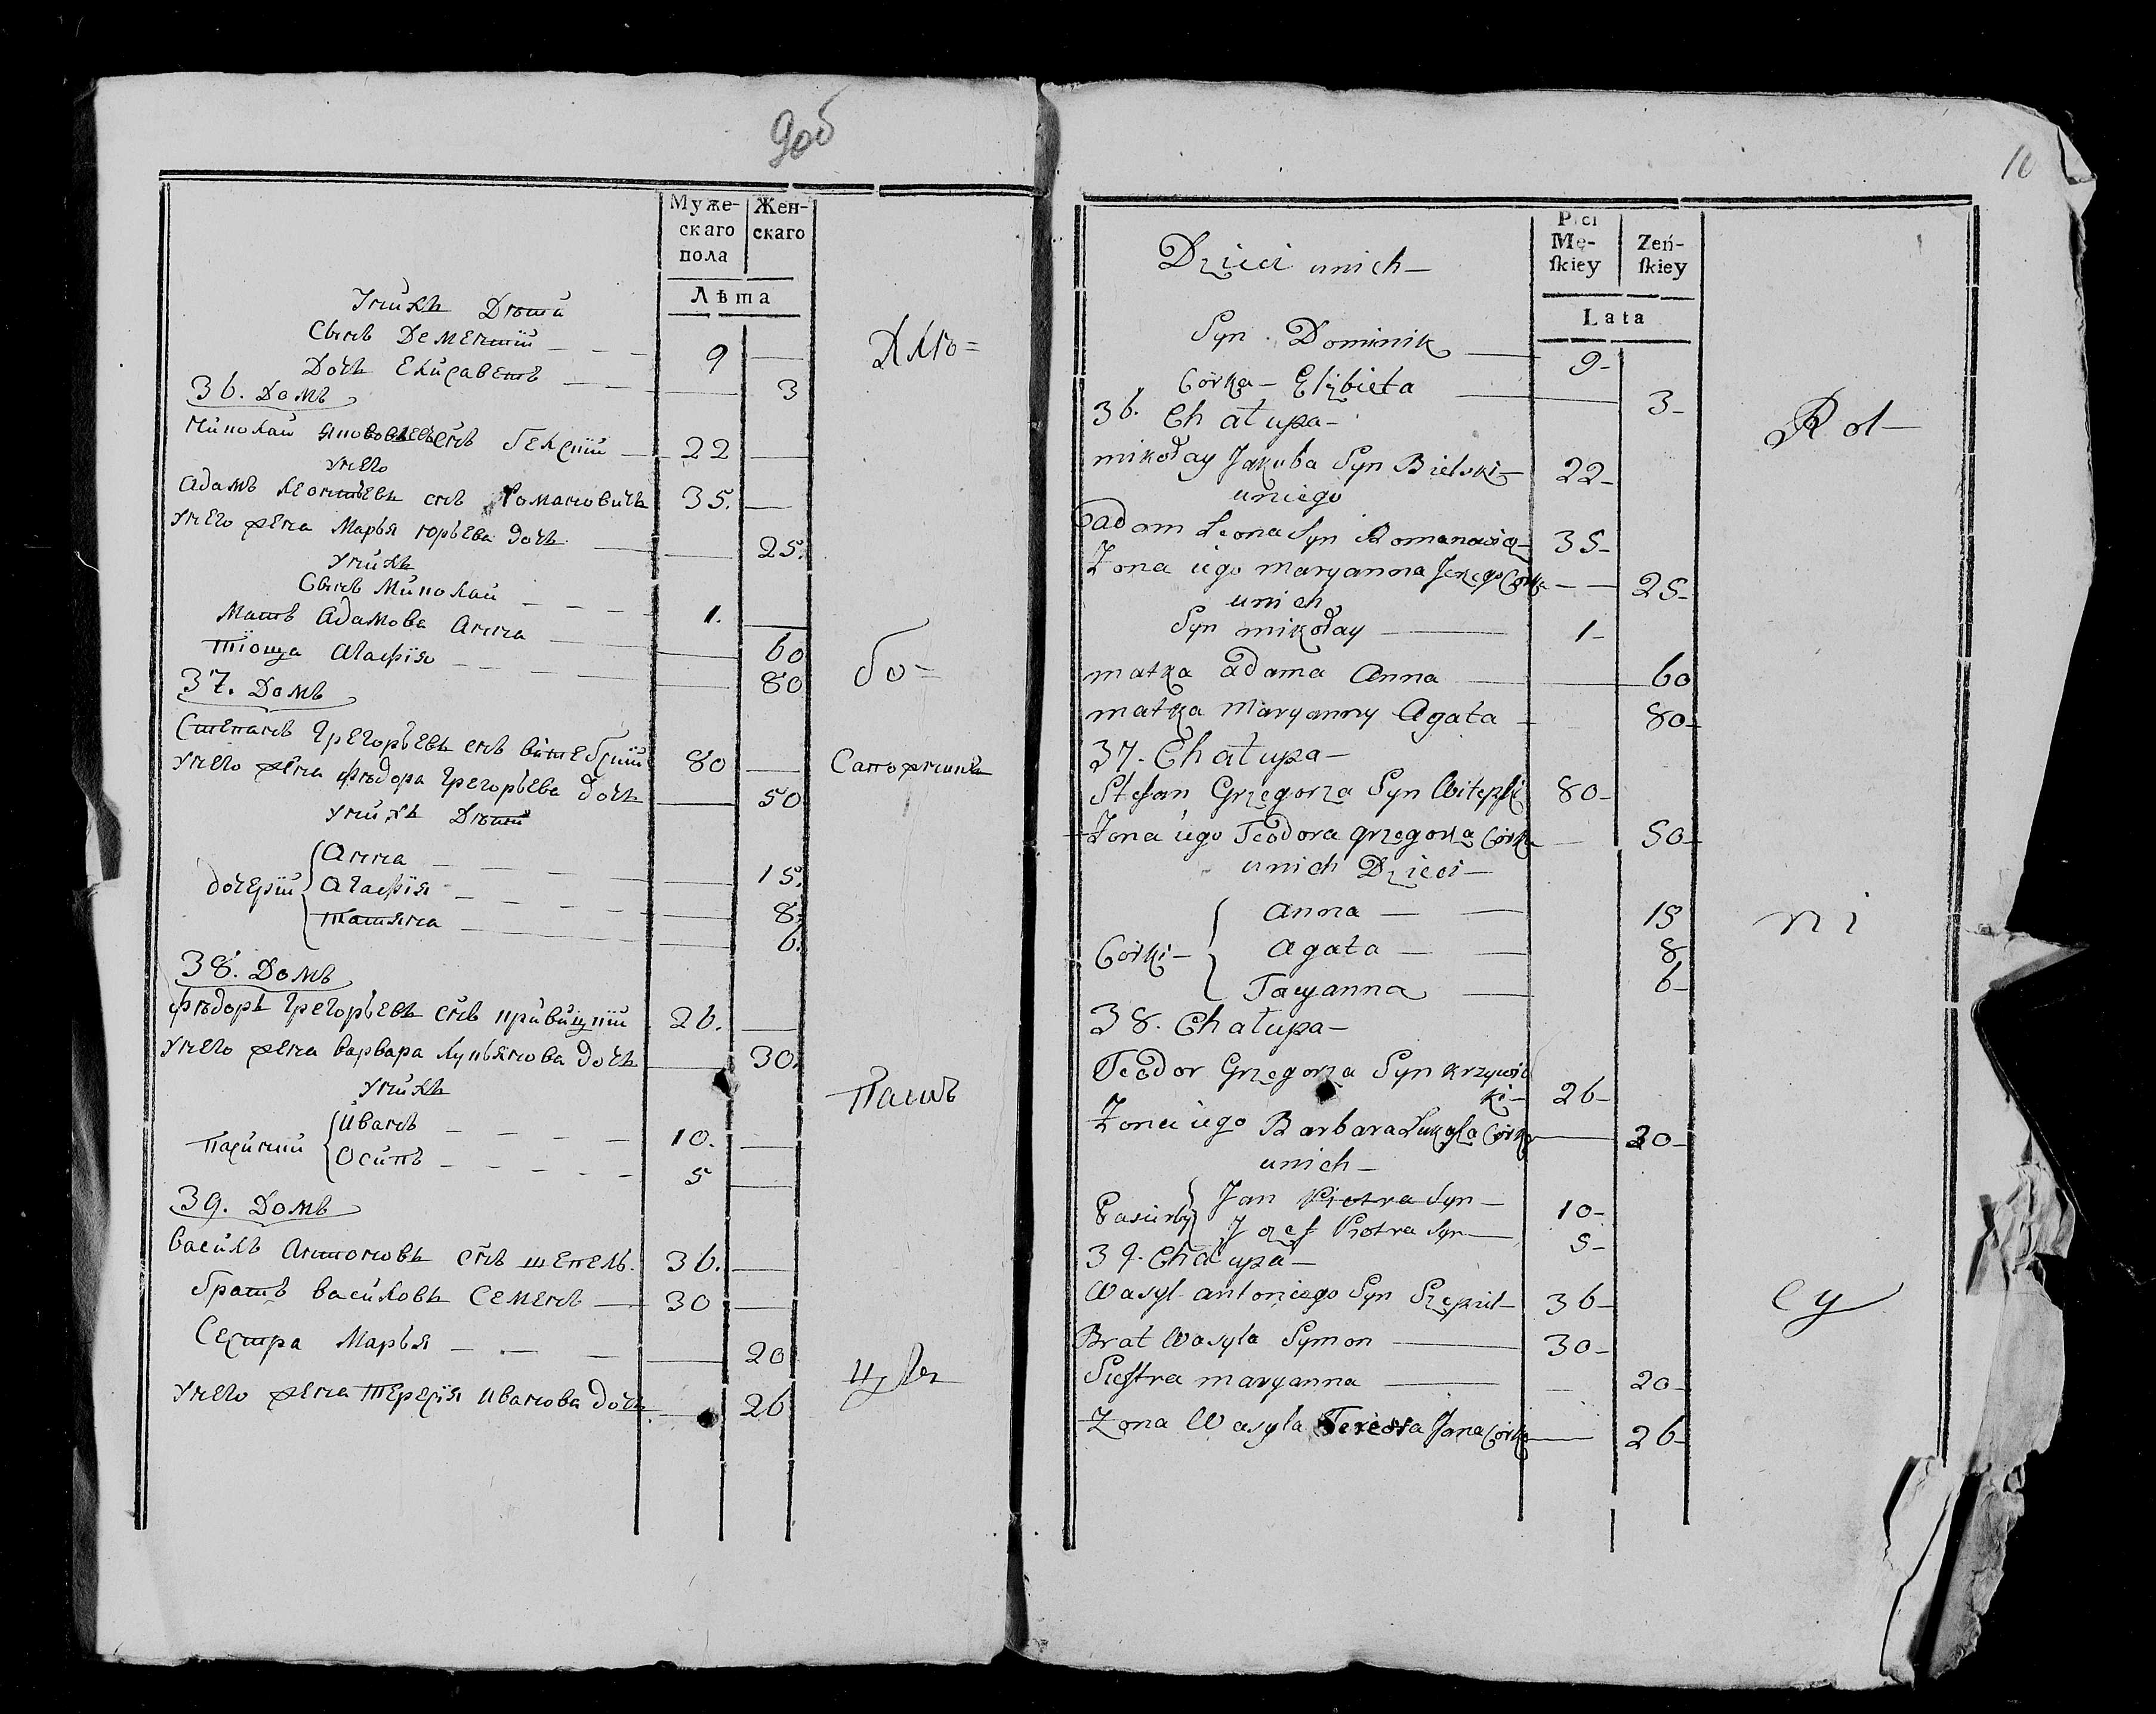 9об
Муже-
скаго
пола
Жен-
скаго
Лѣта
Унихъ Дѣти
Сынъ Дементїй 9
Дочь Елисаветъ 3
36. Домъ
Николай Яковлевъ снъ Белскїй 22
Унего
Адамъ Леонтьевъ снъ Романовичъ 35.
Унего жена Марья юрьева дочь 25.
Унихъ
Сынъ Миколай 1.
Мать Адамова Анна 60
Тїоща Агафїя 80
37. Домъ
Степанъ Грегорьевъ снъ Витебскїй 80
Унего жена Фѣдора Грегорьева дочь 50
Унихъ Дѣти
Анна 15.
дочерїи Агафїя 8.
Татяна 6.
38. Домъ
Фѣдоръ Грегорьевъ снъ Кривицкїй 26.
Унего жена Варвара Лукьянова дочь 30.
Унихъ
Иванъ 10.
Пасинки Осипъ 5
39. Домъ
Василь Антоновъ снъ Щепель 36.
братъ Васильовъ Семенъ 30
Сестра Марья 20
Унего жена Терезїя Иванова дочь 26
Хлѣ=
бо=
Сапожникъ
Пашъ
цы
10
Płci
Mę-
ſkiey
Zeń-
ſkiey
Lata
Dzieci unich
Syn Dominik 9
Córka Elżbieta 3
36. Chałupa
Mikołay Jakuba Syn Bielski 22
uniego
Adam Leona Syn Romanowicz 35
Żona iego Maryanna Jerzego Córka 25
unich
Syn Mikołay 1
Matka Adama Anna 60
Matka Maryanny Agata 80
37. Chałupa
Stefan Grzegorza Syn Witepſki 80
Żona iego Teodora Grzegorza Córka 50
unich Dzieci
Anna 15
Córki Agata 8
Tacyanna 6
38. Chałupa
Teodor Grzegorza Syn Krzywic
ki 26
Żona iego Barbara Łukaſza Córka 30
unich
Pasierby Jan Piotra Syn 10
Jozef Piotra Syn 5
39. Chałupa
Wasyl Antoniego Syn Szepiel 36
Brat Wasyla Symon 30
Sieſtra Maryanna 20
Żona Wasyla Teressa Jana Córka 26
Rol
ni
cy